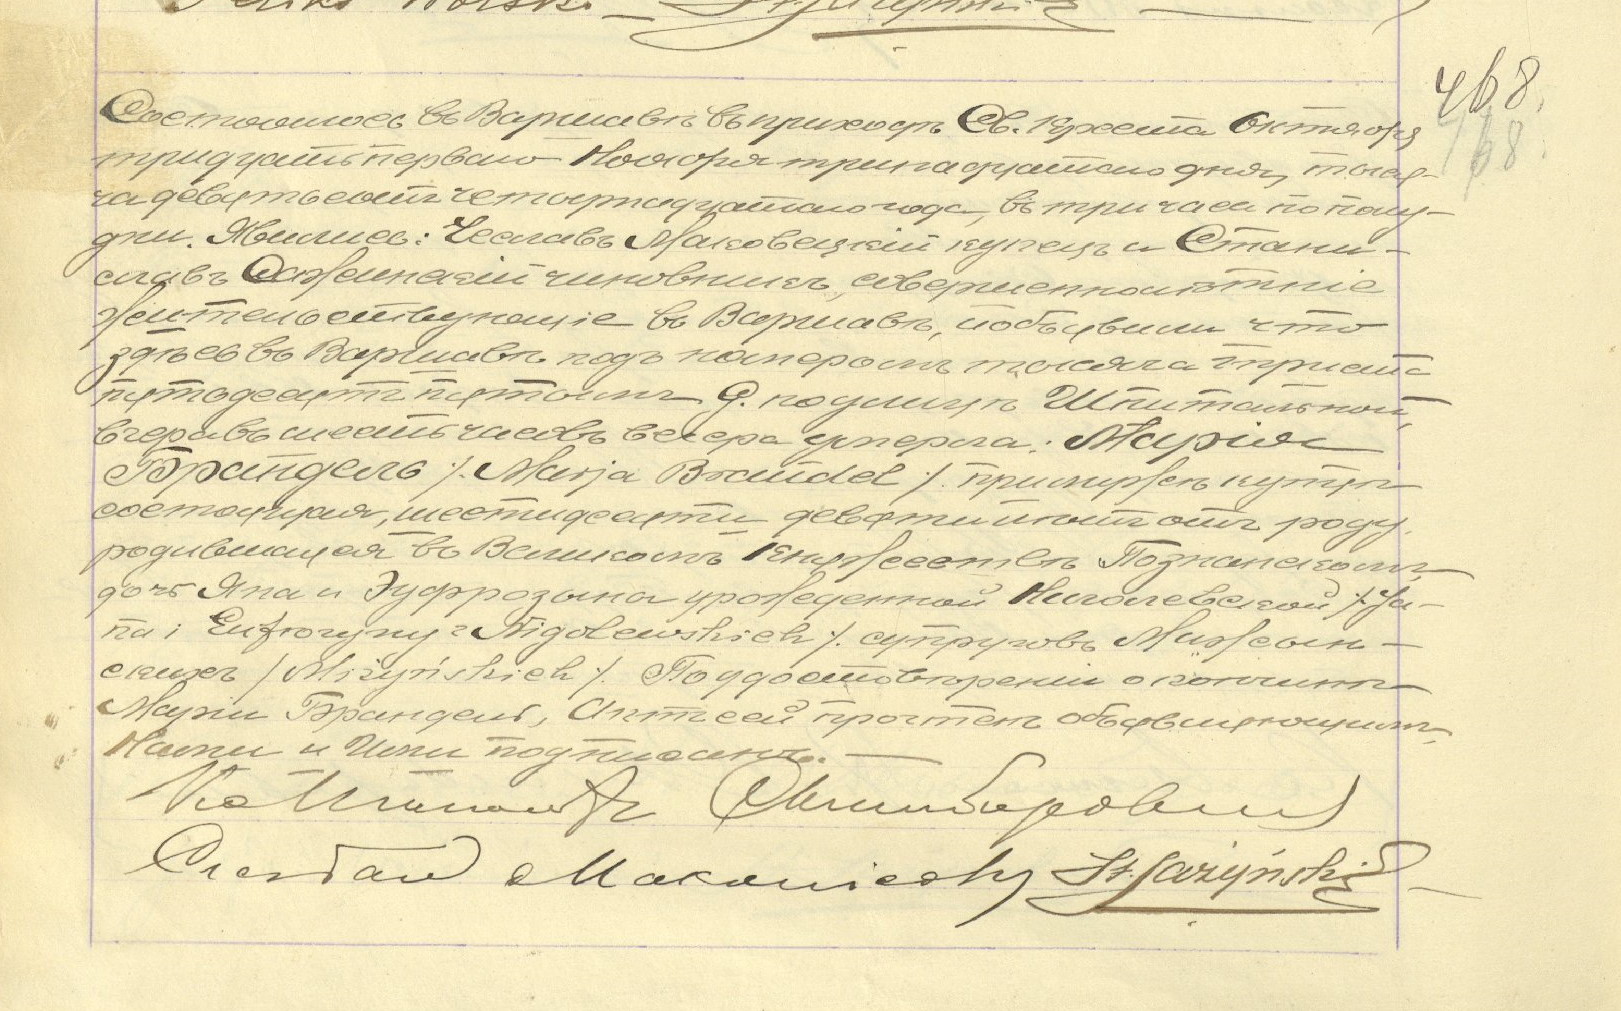 Feliks Wolski. St. Jażyński
468.
468.
Состоялось въ Варшавѣ въ приходѣ Св. Креста Октября
тридцать перваго Ноября тринадцатаго дня, тыся-
ча девятьсотъ четырнадцатаго года, въ три часа по полу-
дни. Явились: Чеславъ Маковецкій купецъ и Стани-
славъ чиновникъ, совершеннолѣтніе
жительствующіе въ Варшавѣ, и объявили что
здѣсь въ Варшавѣ подъ номеромъ тысяча триста
пятьдесятъ пятымъ G. по улицѣ Шпитальной,
вчера въ шесть часовъ вечера умерла: Марія
Брандель /. Marja Brandel /. при мужѣ купцѣ
состоящая, шестидесяти девяти лѣтъ отъ роду,
родившаяся въ Великомъ Княжествѣ Познанскомъ,
дочь Яна и Эуфрозына урожденной Ниголевской /. Ja-
na i Eufrozyny z Nigolewskich /. супруговъ Мижын-
скихъ / Miżyńskich /. По удостовѣреніи о кончинѣ
Маріи Брандель, Актъ сей прочтенъ объявляющимъ,
Нами и Ими подписанъ.
Czesław Makowiecky St. Jażyński